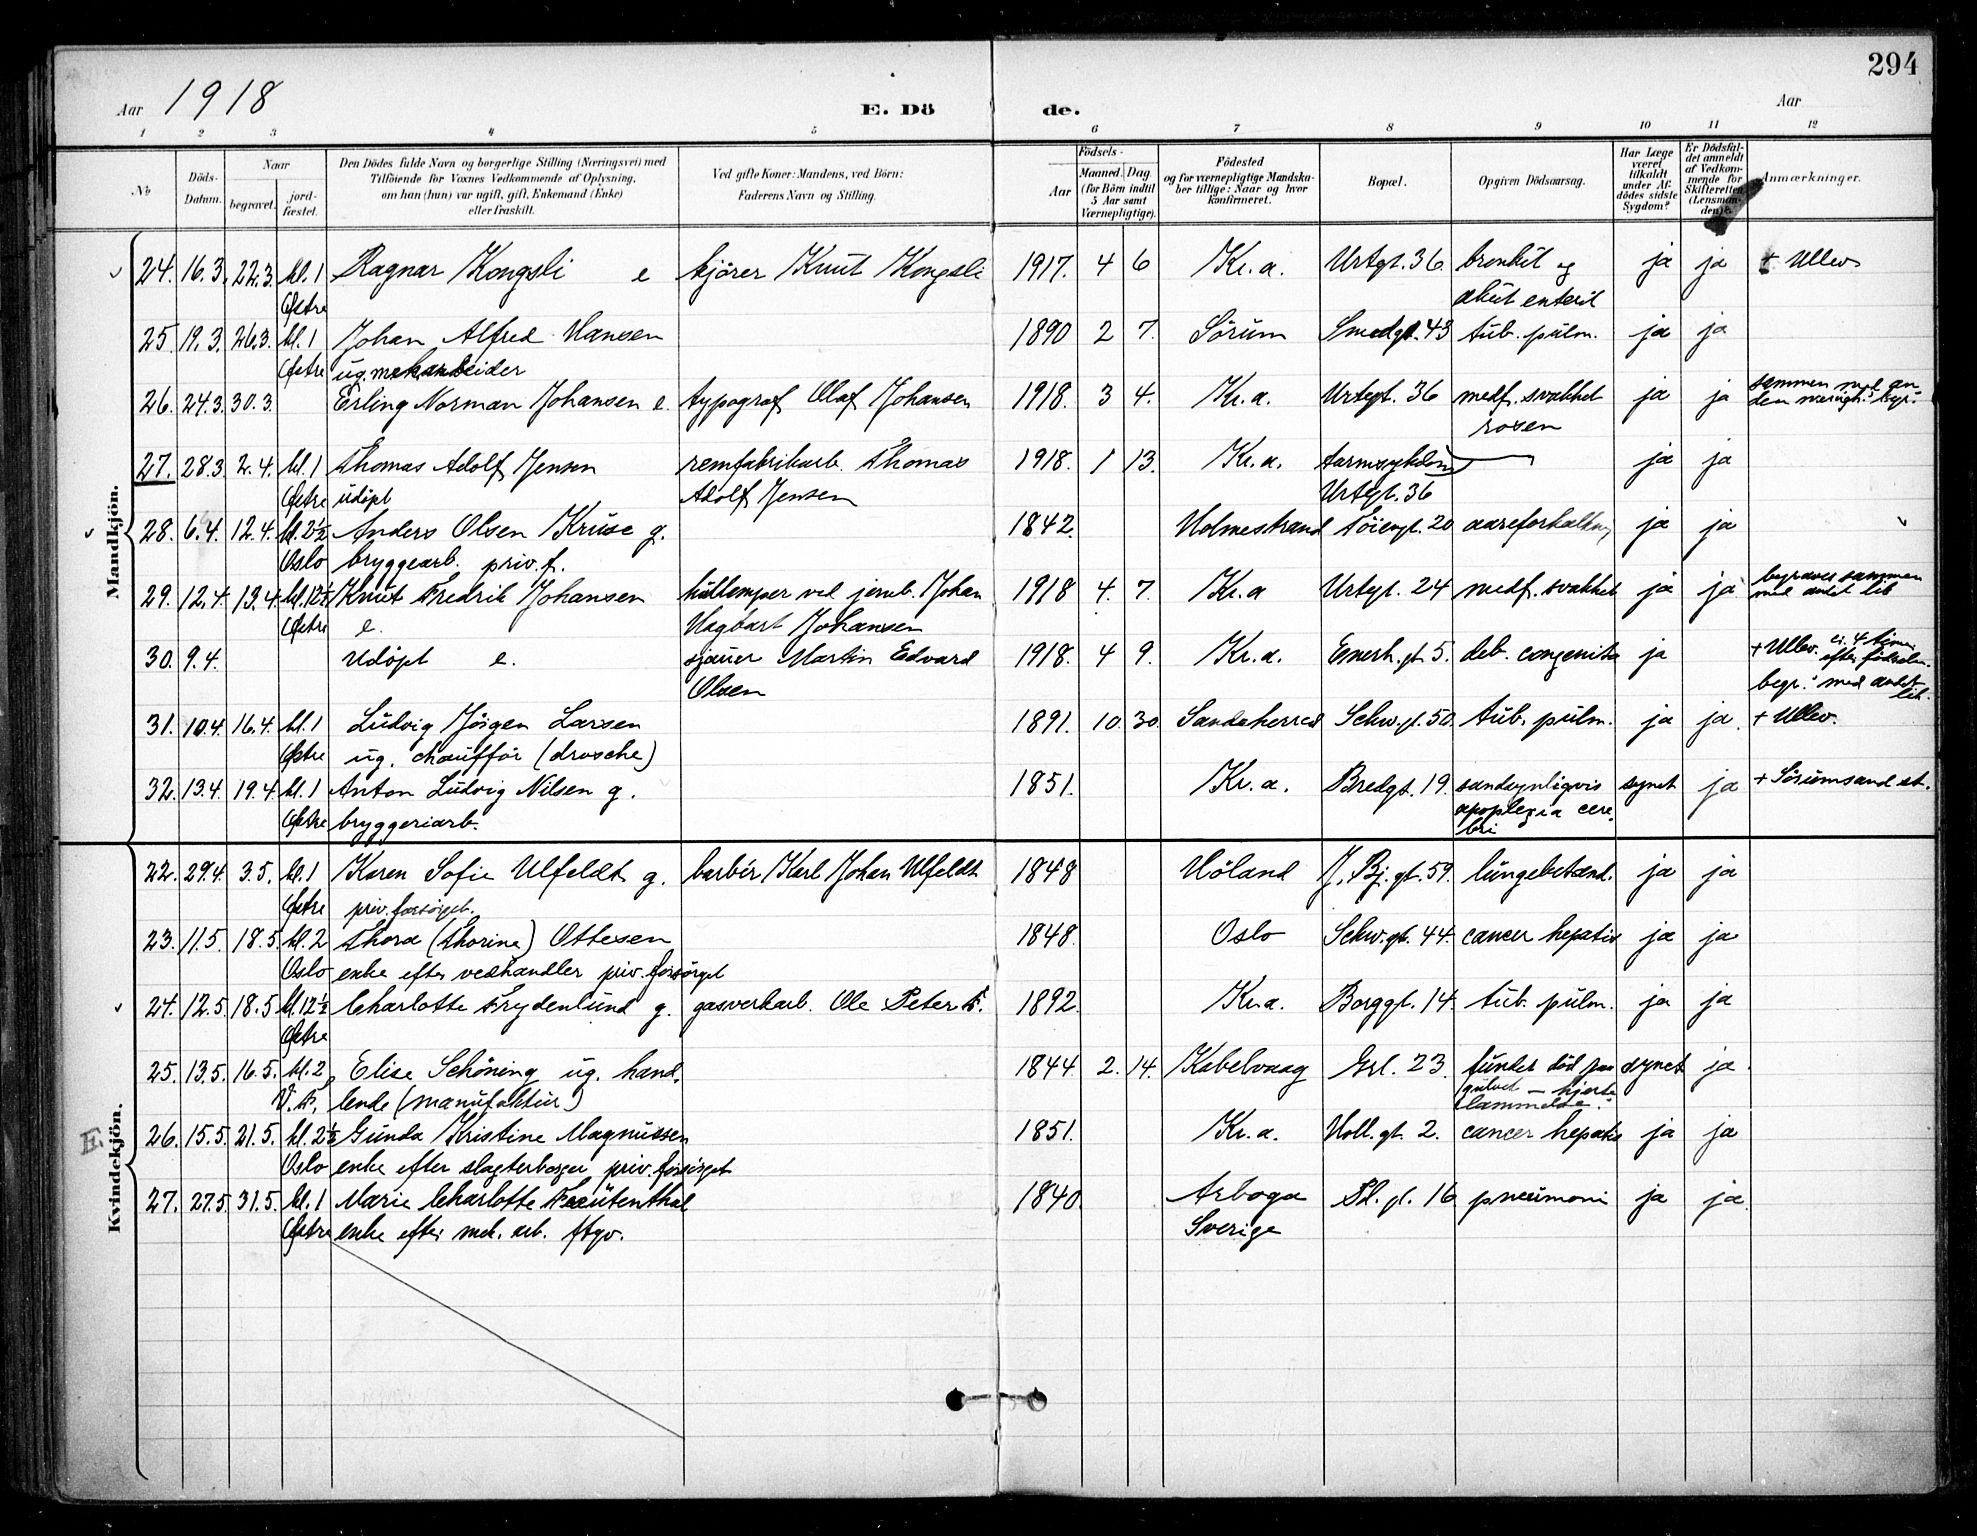 294
Aar 1918 E. Dö de. Aar
1 2 3 4 5 6 7 8 9 10 11 12
No
Döds-Datum.
Naar
begravet.
jordfæstet.
Den Dödes fulde Navn og borgerlige Stilling (Næringsvei) med
Tilföiende for Voxnes Vedkommende af Oplysning,
om han (hun) var ugift, gift, Enkemand (Enke)
eller fraskilt.
Ved gifte Koner: Mandens, ved Börn:
Faderens Navn og Stilling.
Födsels-
Aar
Maaned. Dag
(for Børn indtil
5 Aar samt
Værnepligtige).
Födested
og for værnepligtige Mandskaber tillige: Naar og hvor
konfirmeret.
Bopæl.
Opgiven Dödsaarsag.
Har Læge
været
tilkaldt
under Afdödes sidste
Sygdom?
Er Dödsfaldet anmeldt
af Vedkommende for
Skifteretten
(Lensmanden)?
Anmærkninger.
Mandkjön.
24. 16.3. 22.3. kl. 1 Ragnar Kongsli e kjörer Knut Kongsli 1917. 4 6 Kr.a. Urtgt. 36 bronkit og ja ja + Ullev
Östre akut enterit
25. 19.3. 26.3. kl. 1 Johan Alfred Hansen 1890 2 7. Sörum Smedgt. 43 tub. pulm. ja ja
Östre ug. mek. arbeider
26. 24.3. 30.3. Erling Norman Johansen e. typograf Olaf Johansen 1918. 3 4. Kr.a. Urtegt. 36 medf. svakhet ja ja sammen med an
rosen den
27. 28.3. 2.4. kl. 1 Thomas Adolf Jensen remfabrikarb. Thomas 1918. 1 13. Kr.a. tarmsykdom ja ja
Östre udöpt Adolf Jensen Urtegt. 36
28. 6.4. 12.4. kl. 2½ Anders Olsen Kruse g. 1842. Holmestrand Töiengt. 20 aareforkalkn. ja ja
Oslo bryggearb. priv. f.
29. 12.4. 13.4. kl. 12½ Knut Fredrik Johansen kullemper ved jernb. Johan 1918 4. 7. Kr.a Urtegt. 24 medf. svakhet ja ja begraves sammen
Östre e. Hagbart Johansen med andet lik
30. 9.4. Udöpt e. sjauer Martin Edvard 1918. 4 9. Kr.a. Enerh. gt. 5. deb. congenita ja + Ullev. ca. 4 timer
efter fødselen.
Olsen begr. med andet
lik.
31. 10.4. 16.4. kl. 1 Ludvig Jörgen Larsen 1891. 10. 30. Sandeherred Schw. gt. 50. tub. pulm. ja ja. + Ullev.
Östre ug. chaufför (drosche)
32. 13.4. 19.4. kl. 1 Anton Ludvig Nilsen g. 1851. Kr.a. Bredgt. 19. sandsynligvis synet ja + Sörumsand st.
Östre bryggeriarb. apoplexia cere
bri
Kvindekjön.
22. 29.4. 3.5. kl. 1 Karen Sofie Ulfeldt g. barbér Karl Johan Ulfeldt 1848 Höland J. Bj. gt. 59. lungebetænd. ja ja
Östre priv. forsörget.
23. 11.5. 18.5. kl. 2 Thora (Thorine) Ottesen 1848. Oslo Schw. gt. 44. cancer hepatis ja ja
Oslo enke efter vedhandler priv. forsörget
24. 12.5. 18.5. kl. 12½ Charlotte Frydenlund g. gasverkarb. Ole Peter F. 1892. Kr.a. Borggt. 14. tub. pulm. ja ja
Östre
25. 13.5. 16.5. kl. 2 Elise Schöning ug. hand- 1844. 2. 14. Kabelvaag Grl. 23. fundet död paa synet ja
V. A. lende (manufaktur) gulvet — hjerte
lammelse.
E. 26. 15.5. 21.5. kl. 2½ Gunda Kristine Magnussen 1851. Kr.a. Holl. gt. 2. cancer hepatis ja ja
Oslo enke efter slagterborger priv. forsörget
27. 27.5. 31.5. kl. 1 Marie Charlotte 1840. Arboga Pl. gt. 16 pneumoni ja ja.
Östre enke efter mek. arb. ftgv. Sverige